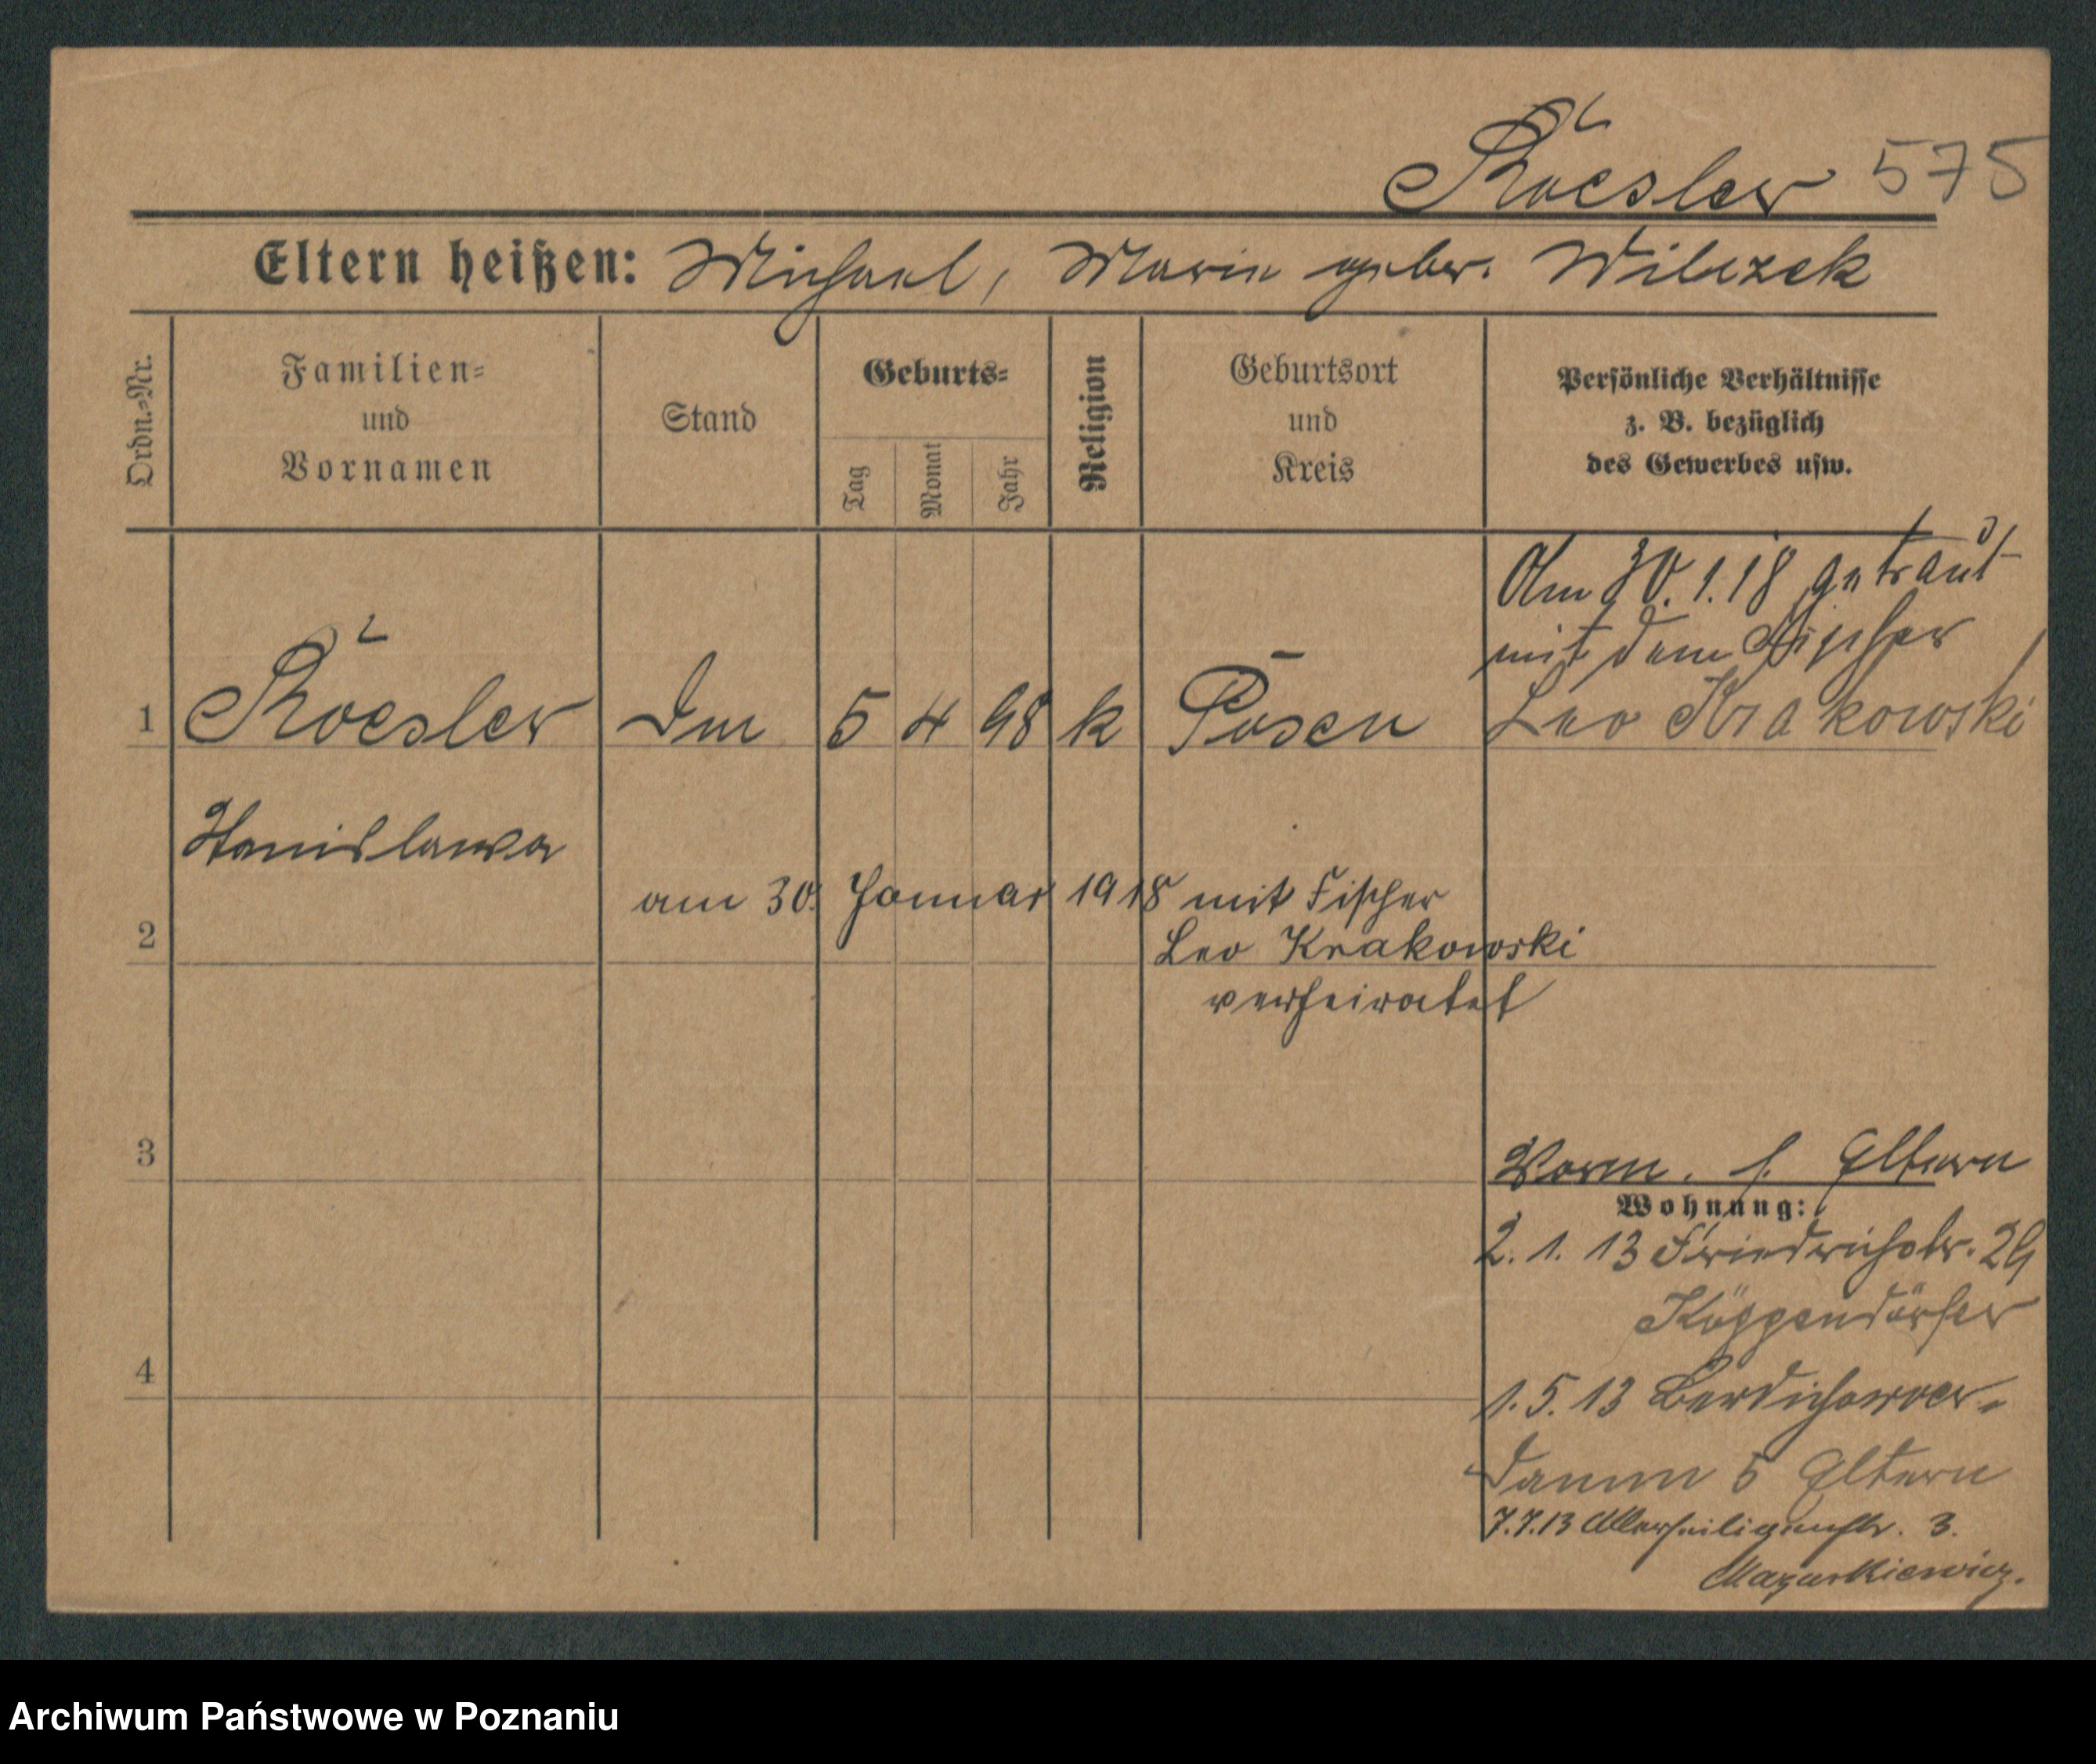 Roesler 575
Eltern heißen: Michael, Marie geber. Wilczek
Ordn.-Nr.
Familien-
und
Vornamen
Stand
Geburts-
Tag
Monat
Jahr
Religion
Geburtsort
und
Kreis
Persönliche Verhältnisse
z. B. bezüglich
des Gewerbes usw.
Am 30.1.18 getraut
mit dem Fischer
1 Roesler 5 4 98 k Posen Leo Krakowski
Stanislawa
am 30. Januar 1918 mit Fischer
2 Leo Krakowski
verheiratet
3 Vorm. s. Eltern
Wohnung:
2. 1. 13 Friedrichstr. 29
4
1. 5. 13 Berdichower-
damm 5 Eltern
7.7.13 Allerheiligenstr. 3.
Mazurkiewicz.
Archiwum Państwowe w Poznaniu